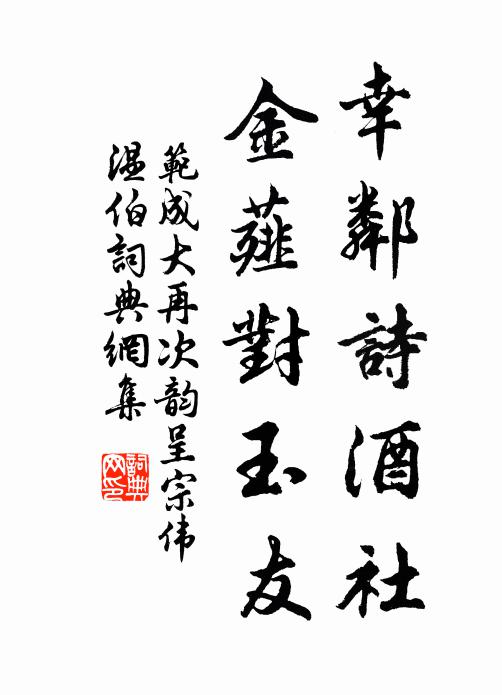 幸鄰詩酒社
金薤對玉友
範成大再次韵呈宗伟
温伯詞典網集
詞典
网印